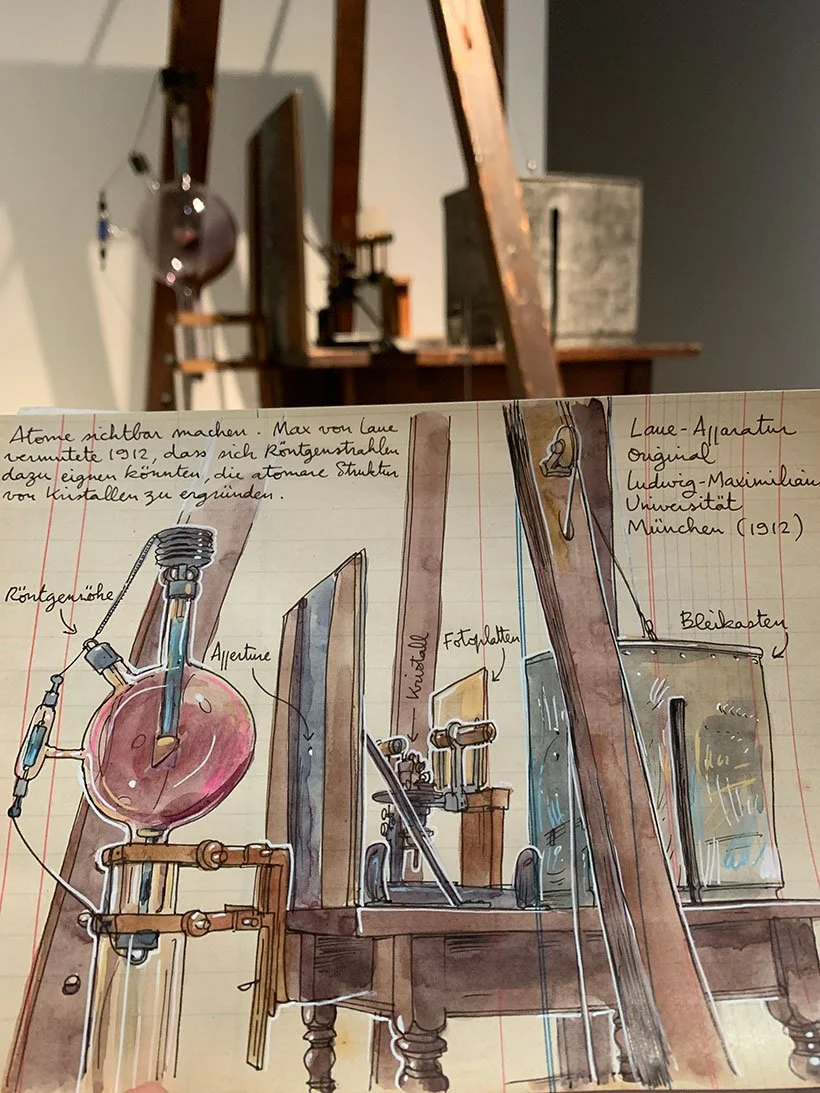 Atome sichtbar machen. Max von Laue
vermutete 1912, dass sich Röntgenstrahlen
dazu eignen könnten, die atomare Struktur
von Kristallen zu ergründen.
Laue-Apparatur
Original
Ludwig-Maximilians
Universität
München (1912)
Röntgenröhe
Apperture
Kristall
Fotoplatten
Bleikasten